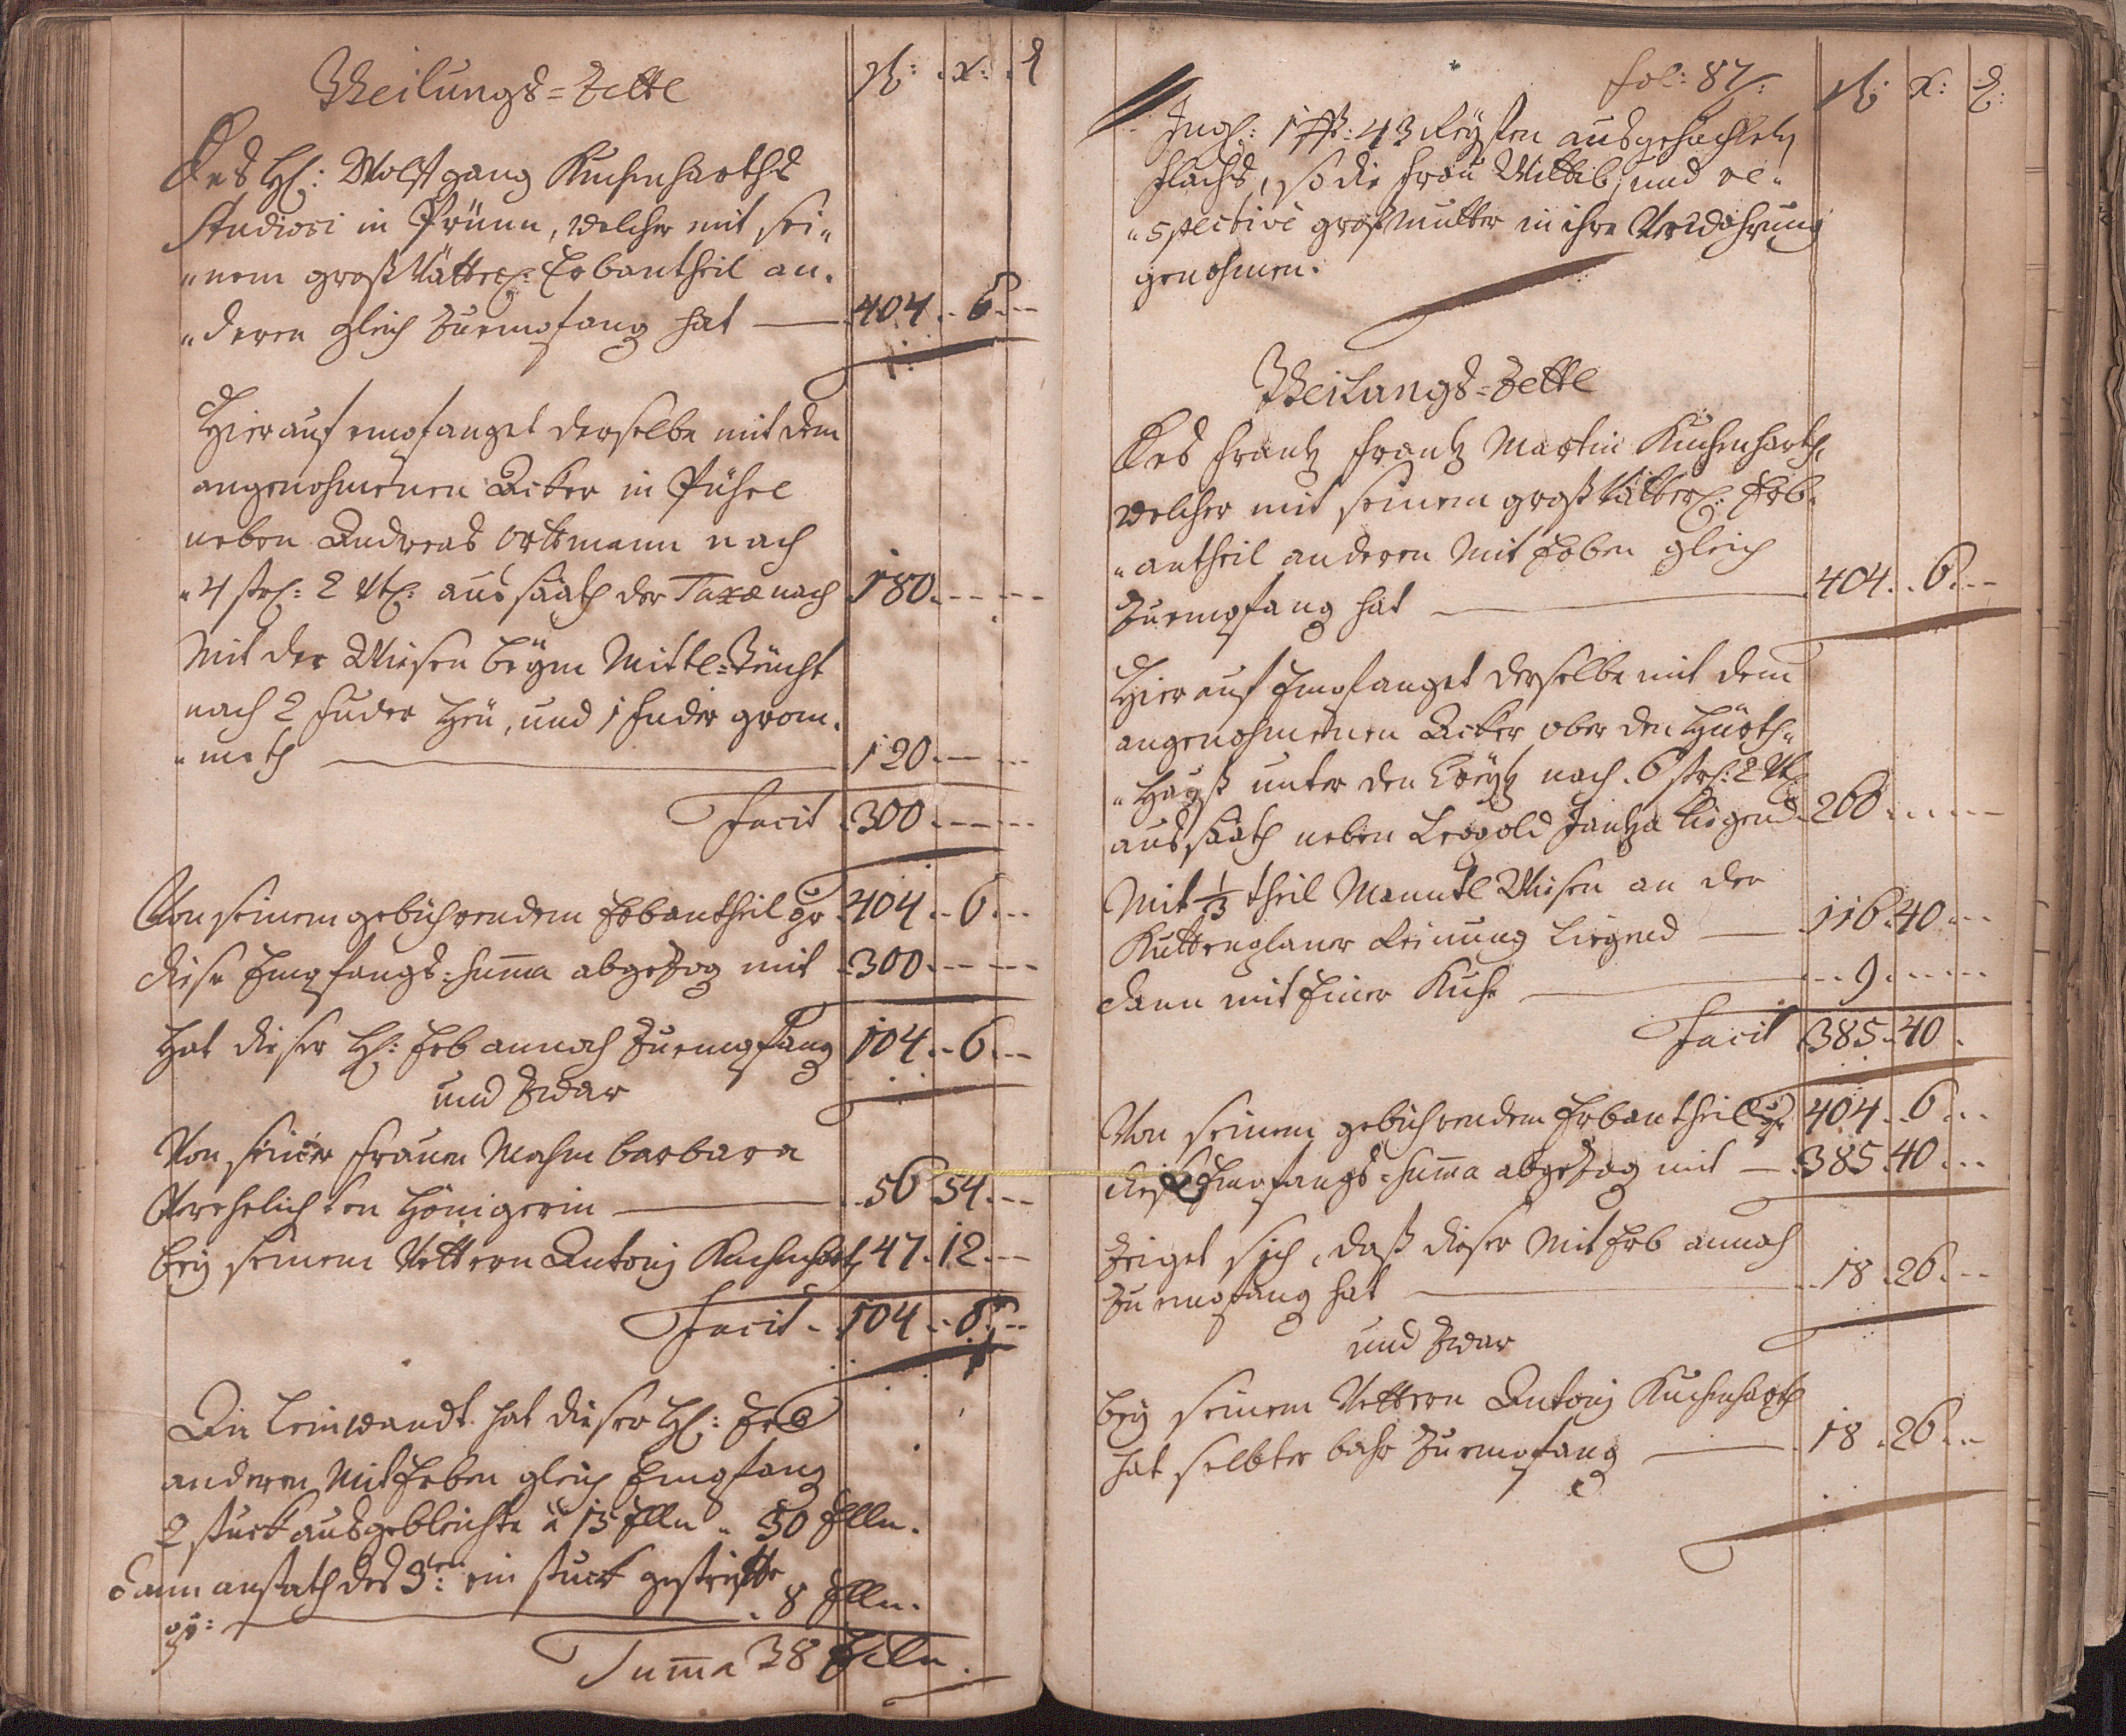 Theilungs=Zettl
fl: x: ₰
Des H: Wolfgang Kuchenharths
Studiosi in Prünn, welcher mit sei„
„nem großvätterl: Erbantheil an„
„deren gleich zuempfang hat — 404 .. 6 --
Hierauf empfanget derselbe mit dem
angenohmenen Acker in Pühel
neben Andreas Ortmann nach
„4 str: 2 vtl: aussaath der Taxa nach 180 . -- --
Mit der Wiesen beÿm Mittl=Teücht
nach 2 fuder Heü, und 1 fuder grom„
„meth — 120 . -- --
Facit . 300 . -- --
Von seinem gebührendem Erbantheil pr 404 .. 6 --
diese Empfangs=summa abgezog mit . 300 . -- --
Hat dieser H: Erb annoch zuempfang 104 .. 6 --
und zwar
Von seiner Frauen Mahm barbara
Verehelichten Hönigerin — .. 56 54 . --
beÿ seinem Vettern Antonj Kuchenharth 47 . 12 . --
Facit . 104 .. 6 --
An Leinwandt hat dieser H: Erb
anderen Mit Erben gleich Empfang
2 stuck ausgebleichte à 15 Elln „ 30 Elln.
dann anstath des 3ten: ein stuck
pr: — . 8 Elln.
Summa 38 Elln.
fol: 87:
fl: x: ₰:
Ingl: 1 43 Reÿsten ausgehächlety
flachs, so die frau Wittib, und re„
„spective großmutter in ihre Verwahrung
genohmen.
Theilungs=Zettl
Des Frantz Frantz Martin Kuchenharth,
welcher mit seinem großvätterl: Erb„
„antheil anderen Mit Erben gleich
zuempfang hat — 404 .. 6 --
Hierauf Empfanget derselbe mit dem
angenohmenen Acker ober den Hürth„
„Hauß unter den Creÿtz nach . 6 str: 2 vtl
aussaath neben Leopold Jantza liegend . 260 . -- --
Mit 1/3 theil Manntl Wiesen an der
Kuttenplaner Reinung liegend — . 116 . 40 . --
dann mit Einer Kuhe — .. 9 . -- --
Facit . 385 . 40 .
Von seinem gebührendem Erbantheil pr 404 .. 6 --
diese Empfangs=summa abgezog mit — . 385 . 40 . --
Zeiget sich, daß dieser Mit Erb annoch
zuempfang hat — .. 18 . 26 . --
und zwar
beÿ seinem Vettern Antonj Kuchenharth
hat selbter bahr zuempfang — . 18 . 26 . --